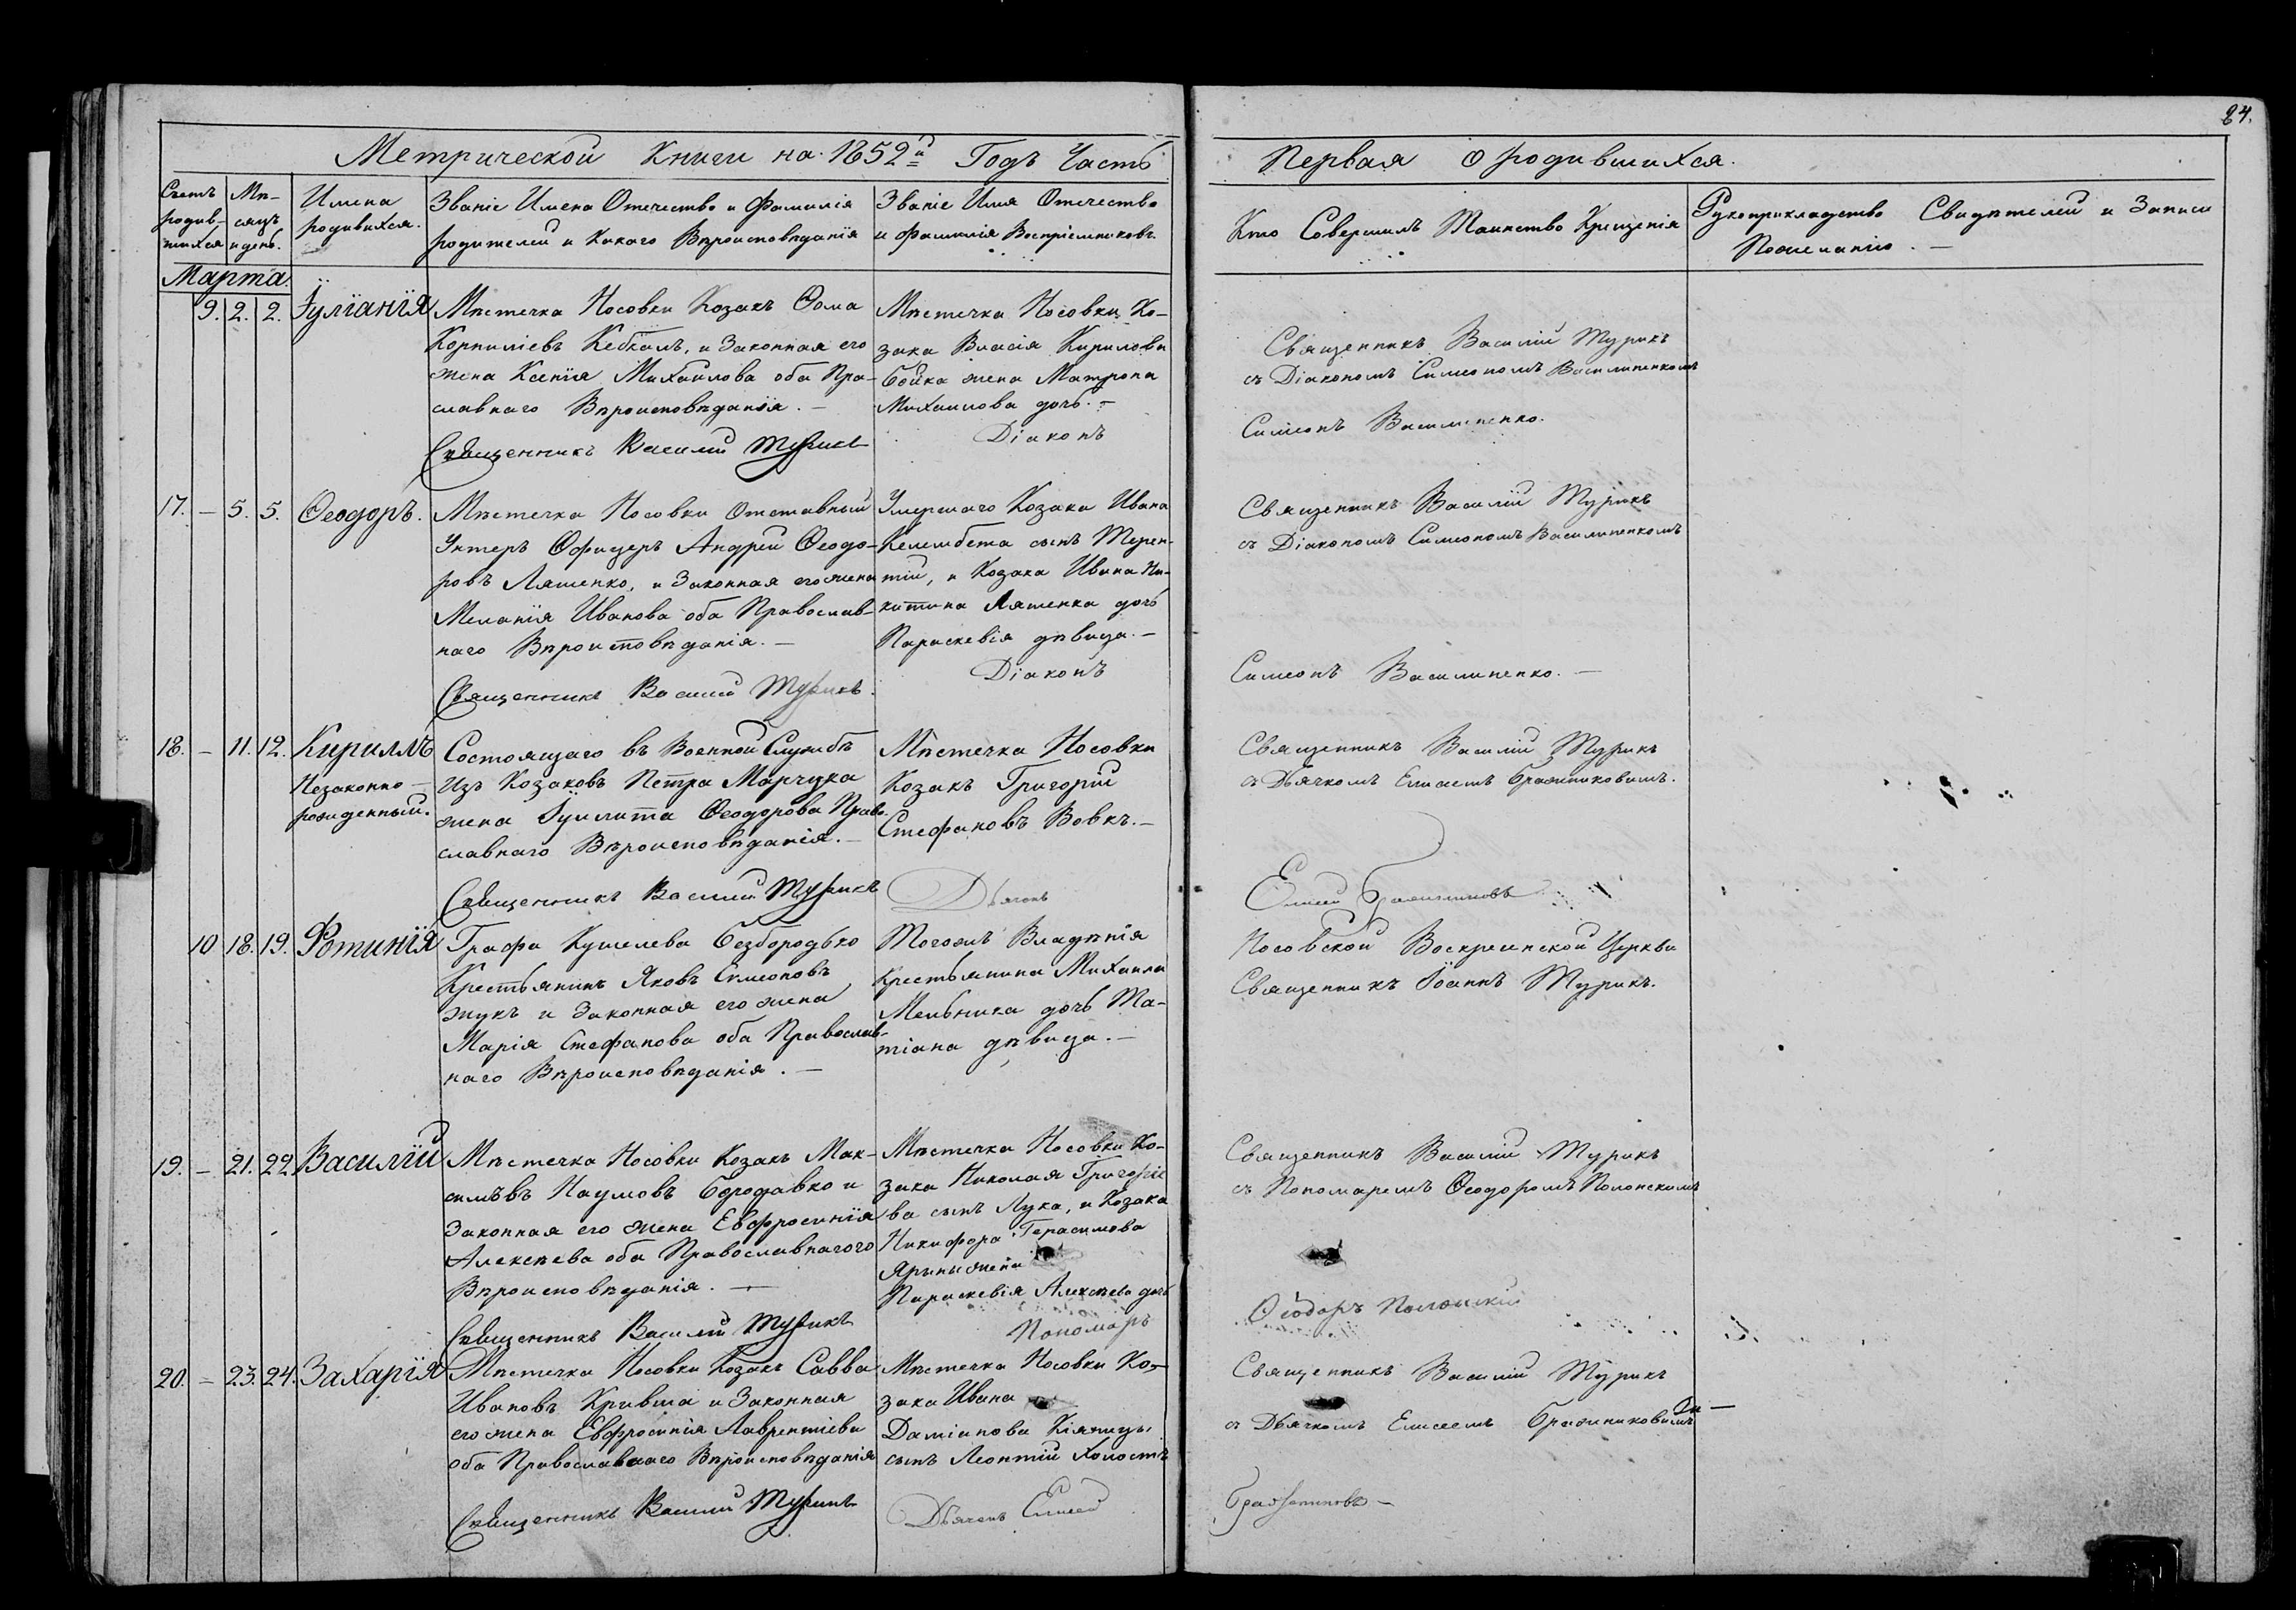 24.
Метрической Книги на 1852й Годъ Часть Первая о родившихся.
Счетъ родив-шихся
Мѣ-сяцъ и день.
Имена родивихся.
Званіе Имена Отечество и Фамилія
родителей и Какого Вѣроисповѣданія
Званіе Имя Отечество
и фамилія Воспріемниковъ
Кто Совершилъ Таинство Крещенія
Рукоприкладство Свидѣтелей и Записи
Пожеланію. —
Марта.
9. 2. 2. Іуліанія
Мѣстечка Носовки Козакъ Ѳома
Корниліевъ Кебкалъ, и Законная его
жена Ксенія Михаилова оба Пра-
славнаго Вѣроисповѣданія. —
Священникъ Василій Турикъ
Мѣстечка Носовки Ко-
зака Власія Кирилова
бойка жена Матрона
Михаилова дочь. —
Діаконъ
Священникъ Василій Турикъ
съ Діакономъ Симеономъ Василиненкомъ
Симеонъ Василиненко.
17. — 5. 5. Ѳеодоръ.
Мѣстечка Носовки Отставный
Унтеръ Офицеръ Андрей Ѳеодо-
ровъ Ляшенко, и Законная его жена
Меланія Иванова оба Православ-
наго Вѣроисповѣданія. —
Священникъ Василій Турикъ.
Умершаго Козака Ивана
Келембета сынъ Терен-
тій, и Козака Ивана Ни-
китина Ляшенка дочь
Параскевія дѣвица. —
Діаконъ
Священникъ Василій Турикъ
съ Діакономъ Симеономъ Василиненкомъ
Симеонъ Василиненко. —
18. — 11. 12. Кириллъ
Незаконно —
рожденный.
Состоящаго въ Военной Службѣ
Изъ Козаковъ Петра Марчука
жена Іулита Ѳеодорова Право-
славнаго Вѣроисповѣданія. —
Священникъ Василій Турикъ
Мѣстечка Носовки
Козакъ Григорій
Стефановъ Вовкъ. —
Дьячокъ
Священникъ Василій Турикъ
съ Дьячкомъ Елисеемъ Бражниковимъ.
Елисей Бражниковъ
10 18. 19. Фотинія
Графа Кушелева Безбородько
Крестьянинъ Яковъ Симеоновъ
жукъ и Законная его жена
Марія Стефанова оба Православ-
наго Вѣроисповѣданія. —
Тогожъ Владѣнія
Крестьянина Михаила
Мельника дочь Та-
тіана дѣвица. —
Носовской Воскресенской Церкви
Священникъ Іоаннъ Турикъ.
19. — 21. 22. Василій
Мѣстечка Носовки Козакъ Мак-
симъвъ Наумовъ бородавко и
Законная его жена Евфросинія
Алексѣева оба Православнагого
Вѣроисповѣданія. —
Священникъ Василій Турикъ
Мѣстечка Носовки Ко-
зака Николая Григоріе
ва сынъ Лука, и Козака
Никифора Герасимова
Ярыны жена
Параскевія Алексѣева дочь
Пономарь
Священникъ Василій Турикъ
съ Пономаремъ Ѳеодоромъ Полонскимъ
Ѳеодоръ Полонскій
20. — 23. 24. Захарія
Мѣстечка Носовки Козакъ Савва
Ивановъ Кривша и Законная
его жена Евфросинія Лаврентіева
оба Православнаго Вѣроисповѣданія
Священникъ Василій Турикъ
Мѣстечка Носовки Ко-
зака Ивана
Даміанова Кіяницы
сынъ Леонтій Холостъ
Дьячокъ Елисей
Священникъ Василій Турикъ
съ Дьячкомъ Елисеемъ Бражниковимъ
Бражниковъ —